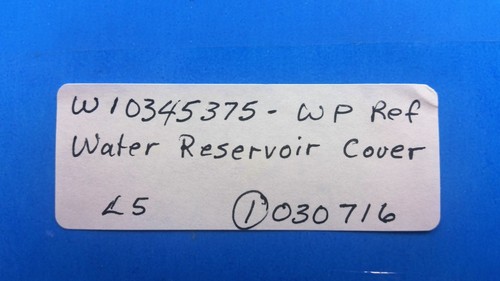 W10345375 - WP Ref
Water Reservoir Cover
L5 ① 030716